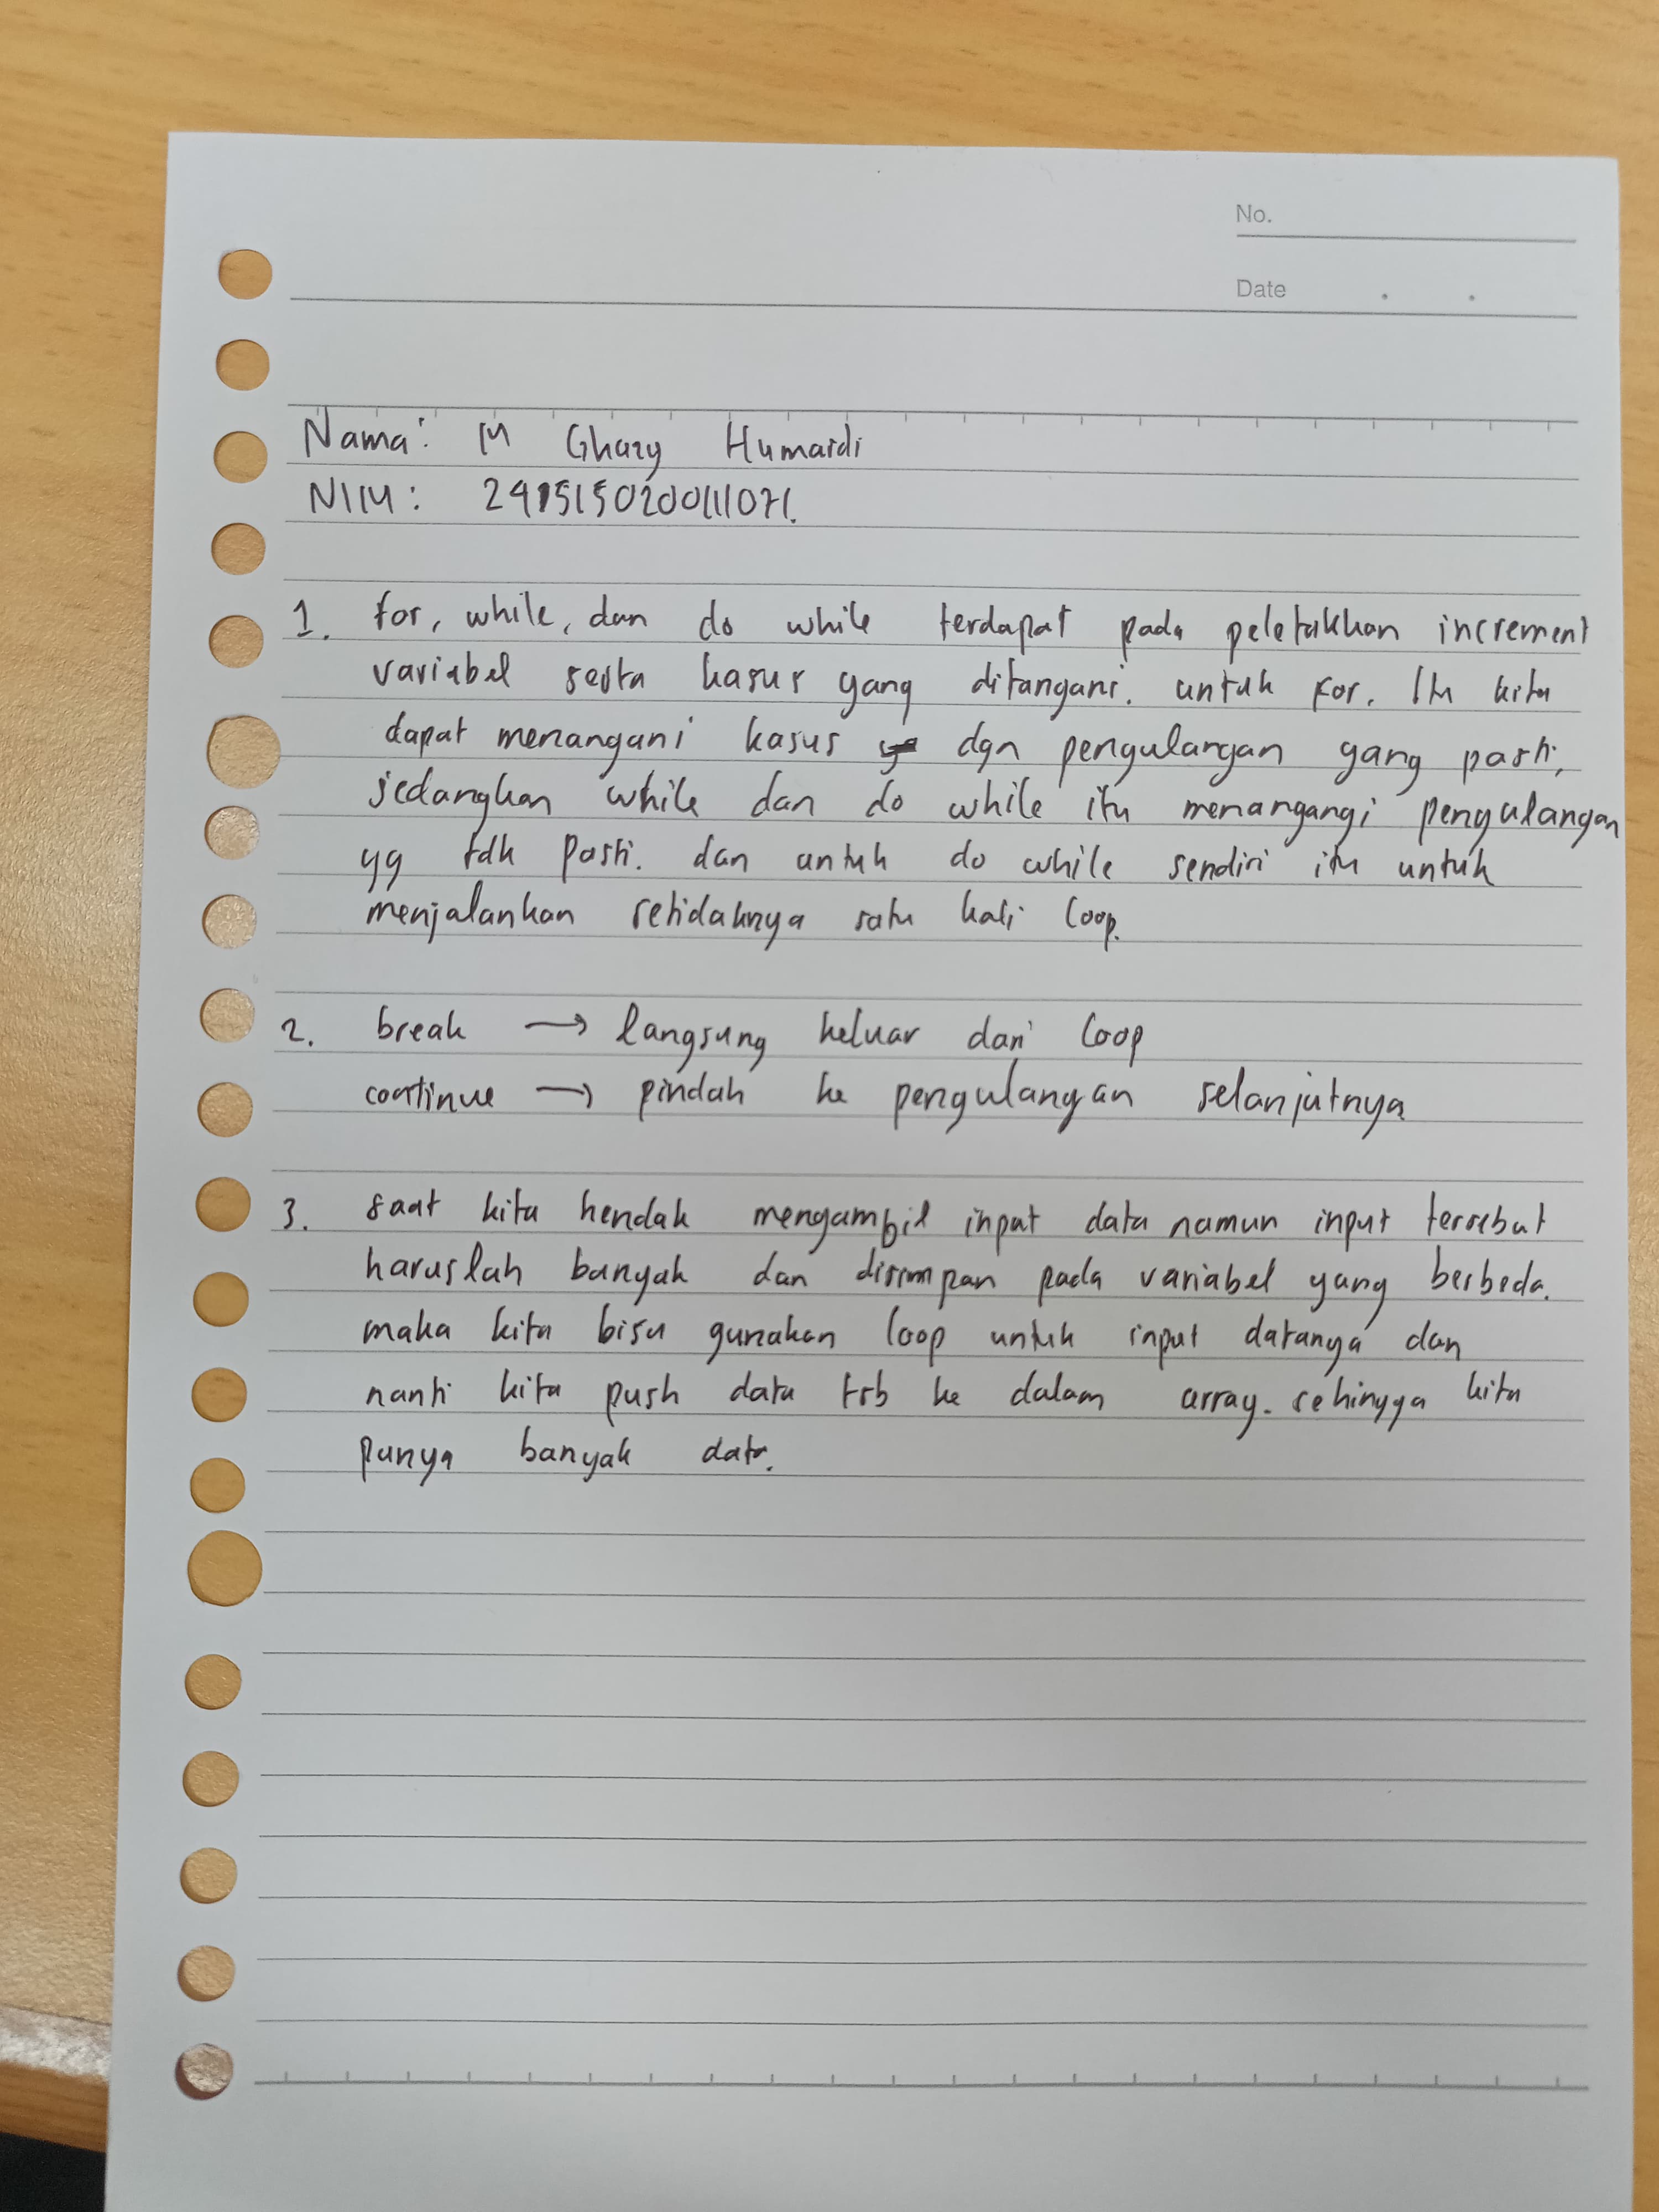 No.
Date
Nama: M Ghazy Humaidi
NIM: 245150200111071.
1. for, while, dan do while terdapat pada peletakkan increment
variabel serta kasus yang ditangani. untuk for. Itu kita
dapat menangani kasus dgn pengulangan yang pasti,
sedangkan while dan do while itu menangangi pengulangan
yg tdk pasti. dan untuk do while sendiri itu untuk
menjalankan setidaknya satu kali loop.
2. break → langsung keluar dari loop
continue → pindah ke pengulangan selanjutnya
3. saat kita hendak mengambil input data namun input tersebut
haruslah banyak dan disimpan pada variabel yang berbeda.
maka kita bisa gunakan loop untuk input datanya dan
nanti kita push data tsb ke dalam array. sehingga kita
punya banyak data.